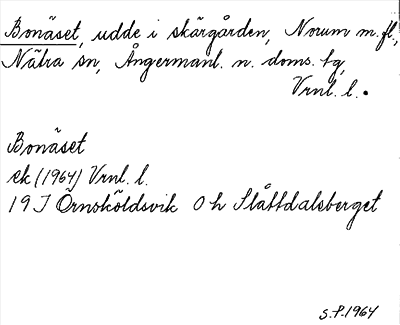 Bonäset, udde i skärgården, Norum m.fl.,
Nätra sn, Ångermanl. n. doms. tg,
Vrnl. l.
Bonäset
ek (1964) Vrnl. l.
19 J Örnsköldsvik 0 h Slåttdalsberget
S.P. 1964